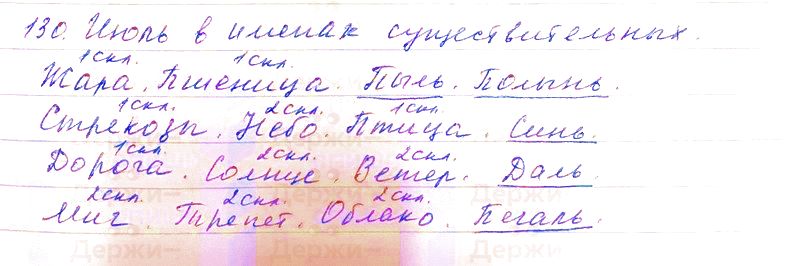 130. Июль в именах существительных.
1скл. 1скл.
Жара. Пшеница. Пыль. Полынь.
1скл. 2скл. 1скл.
Стрекозы. Небо. Птица. Синь.
1скл. 2скл. 2скл.
Дорога. Солнце. Ветер. Даль.
2скл. 2скл. 2скл.
Миг. Трепет. Облако. Печаль.
Держи- Держи- Держи-